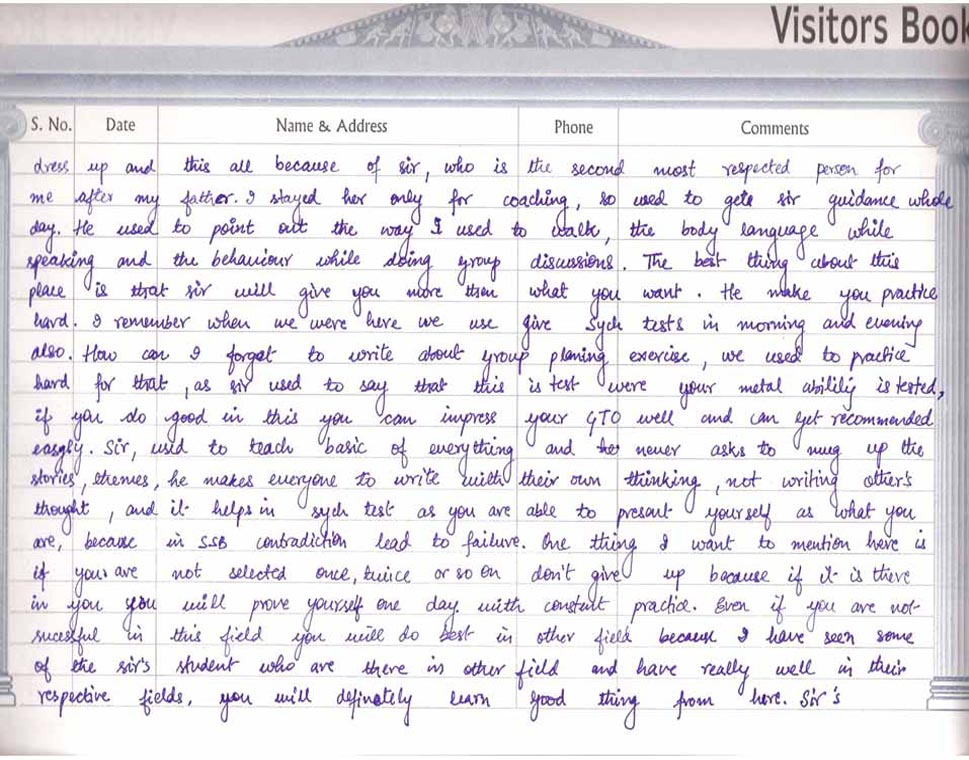 Visitors Book
S. No. Date Name & Address Phone Comments
dress up and this all because of sir, who is the second most respected person for
me after my father. I stayed her only for coaching, so used to gets sir guidance whole
day. He used to point out the way I used to walk, the body language while
speaking and the behaviour while doing group discussions. The best thing about this
place is that sir will give you more then what you want. He make you practice
hard. I remember when we were here we use give Sych tests in morning and evening
also. How can I forget to write about group planing exercise, we used to practice
hard for that, as sir used to say that this is test were your metal abilily is tested,
if you do good in this you can impress your GTO well and can get recommended
easgly. Sir, used to teach basic of everything and he never asks to mug up the
stories, themes, he makes everyone to write with their own thinking, not writing other's
thought, and it helps in sych test as you are able to presant yourself as what you
are, because in SSB contradiction lead to failure. One thing I want to mention here is
if your are not selected once, twice or so on don't give up because if it is there
in you you will prove yourself one day with constant practice. Even if you are not
sucessful in this field you will do best in other field because I have seen some
of the sir's student who are there in other field and have really well in their
respective fields, you will definately learn good thing from here. Sir's